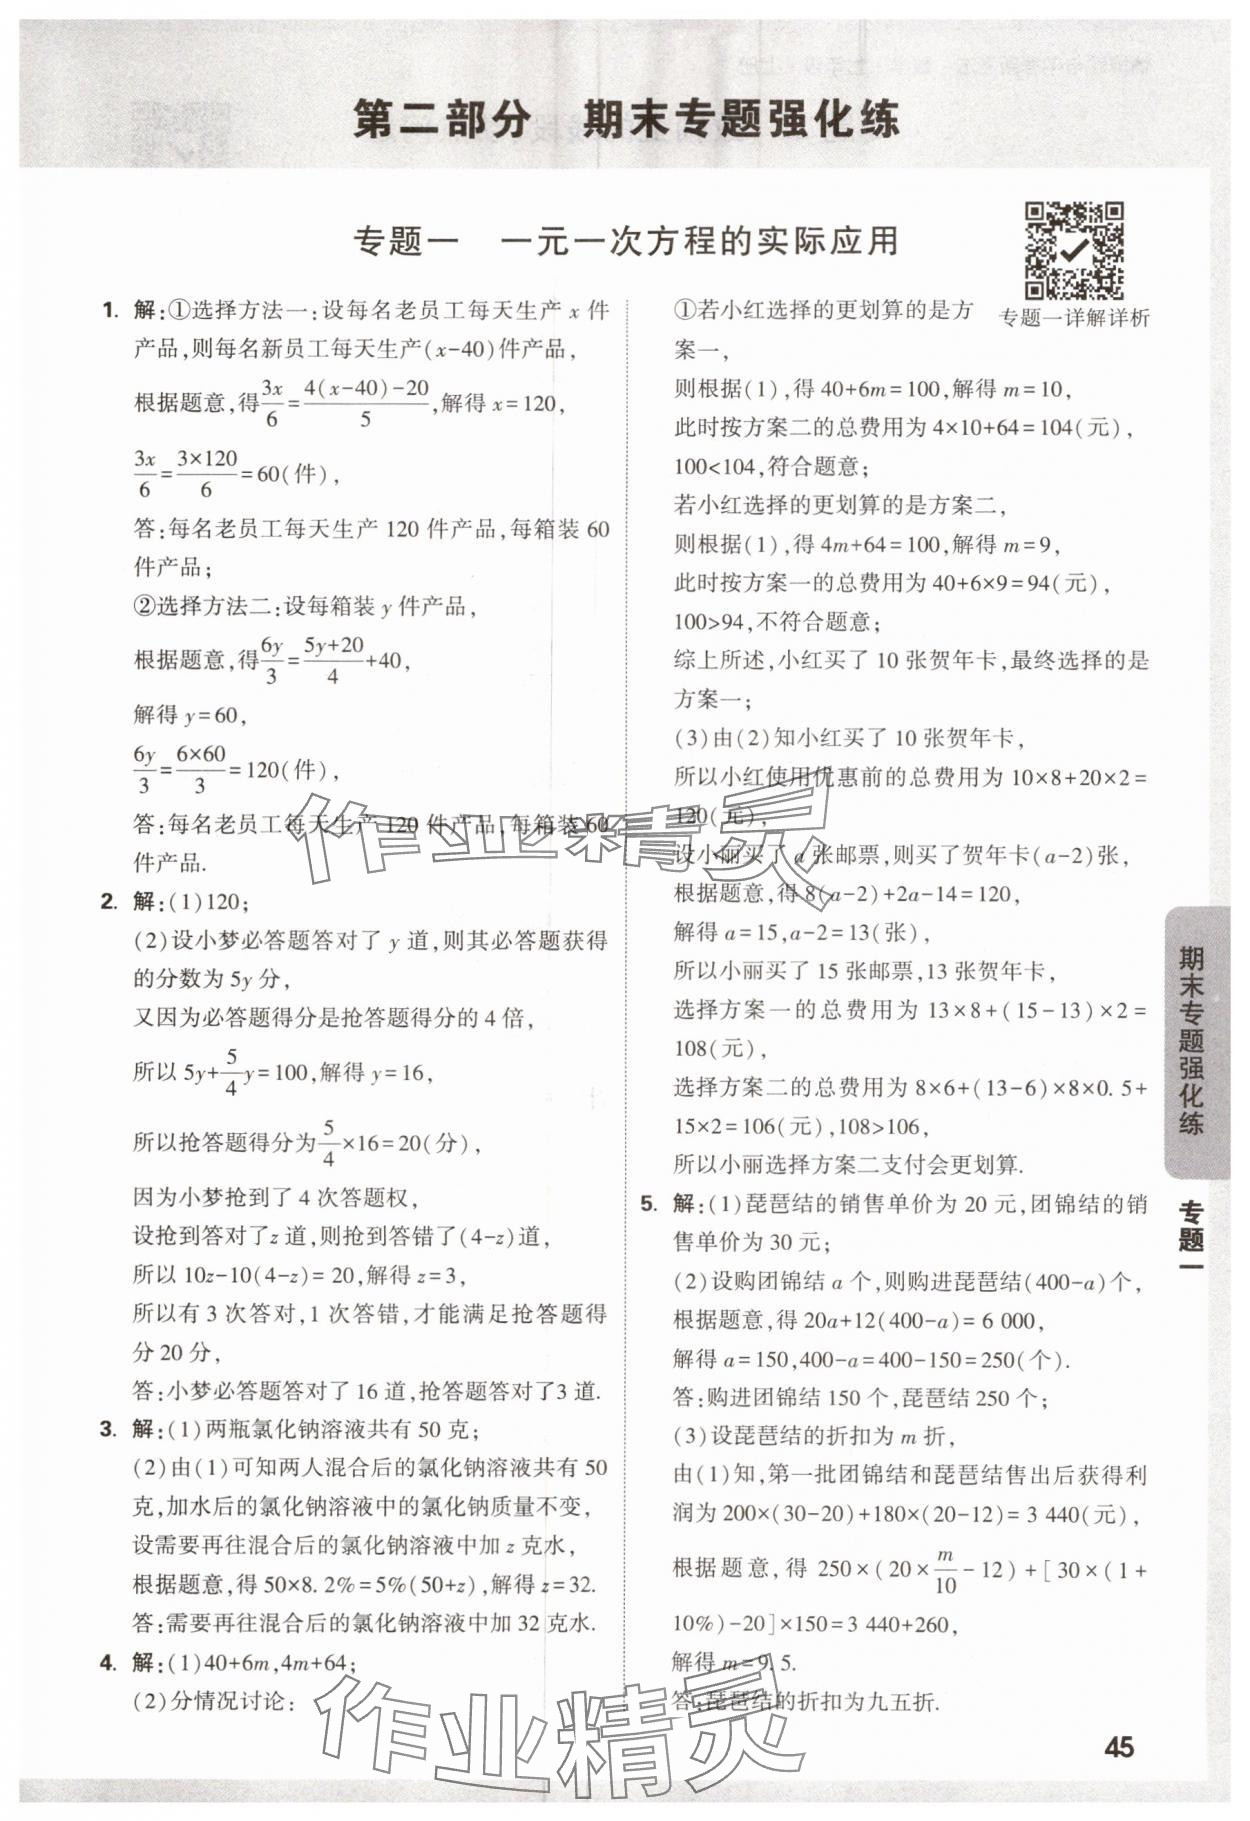 第二部分 期末专题强化练
专题一 一元一次方程的实际应用
专题一详解详析
1. 解:①选择方法一:设每名老员工每天生产 x 件
产品,则每名新员工每天生产(x-40)件产品,
根据题意,得3x/6=(4(x-40)-20)/5,解得 x=120,
3x/6=(3×120)/6=60(件),
答:每名老员工每天生产 120 件产品,每箱装 60
件产品;
②选择方法二:设每箱装 y 件产品,
根据题意,得6y/3=(5y+20)/4+40,
解得 y=60,
6y/3=(6×60)/3=120(件),
答:每名老员工每天生产 120 件产品,每箱装 60
件产品.
2. 解:(1)120;
(2)设小梦必答题答对了 y 道,则其必答题获得
的分数为 5y 分,
又因为必答题得分是抢答题得分的 4 倍,
所以 5y+5/4y=100,解得 y=16,
所以抢答题得分为5/4×16=20(分),
因为小梦抢到了 4 次答题权,
设抢到答对了z 道,则抢到答错了(4-z)道,
所以 10z-10(4-z)=20,解得 z=3,
所以有 3 次答对,1 次答错,才能满足抢答题得
分 20 分,
答:小梦必答题答对了 16 道,抢答题答对了3 道.
3. 解:(1)两瓶氯化钠溶液共有 50 克;
(2)由(1)可知两人混合后的氯化钠溶液共有 50
克,加水后的氯化钠溶液中的氯化钠质量不变,
设需要再往混合后的氯化钠溶液中加 z 克水,
根据题意,得 50×8.2%=5%(50+z),解得 z=32.
答:需要再往混合后的氯化钠溶液中加 32 克水.
4. 解:(1)40+6m,4m+64;
(2)分情况讨论:
①若小红选择的更划算的是方
案一,
则根据(1),得 40+6m=100,解得 m=10,
此时按方案二的总费用为 4×10+64=104(元),
100<104,符合题意;
若小红选择的更划算的是方案二,
则根据(1),得 4m+64=100,解得 m=9,
此时按方案一的总费用为 40+6×9=94(元),
100>94,不符合题意;
综上所述,小红买了 10 张贺年卡,最终选择的是
方案一;
(3)由(2)知小红买了 10 张贺年卡,
所以小红使用优惠前的总费用为 10×8+20×2=
120(元),
设小丽买了 a 张邮票,则买了贺年卡(a-2)张,
根据题意,得 8(a-2)+2a-14=120,
解得 a=15,a-2=13(张),
所以小丽买了 15 张邮票,13 张贺年卡,
选择方案一的总费用为 13×8+(15-13)×2=
108(元),
选择方案二的总费用为 8×6+(13-6)×8×0.5+
15×2=106(元),108>106,
所以小丽选择方案二支付会更划算.
5. 解:(1)琵琶结的销售单价为 20 元,团锦结的销
售单价为 30 元;
(2)设购团锦结 a 个,则购进琵琶结(400-a)个,
根据题意,得 20a+12(400-a)=6 000,
解得 a=150,400-a=400-150=250(个).
答:购进团锦结 150 个,琵琶结 250 个;
(3)设琵琶结的折扣为 m 折,
由(1)知,第一批团锦结和琵琶结售出后获得利
润为 200×(30-20)+180×(20-12)=3 440(元),
根据题意,得 250×(20×m/10-12)+[30×(1+
10%)-20]×150=3 440+260,
解得 m=9.5.
答:琵琶结的折扣为九五折.
期末专题强化练
专题一
45
作业精灵
作业精灵